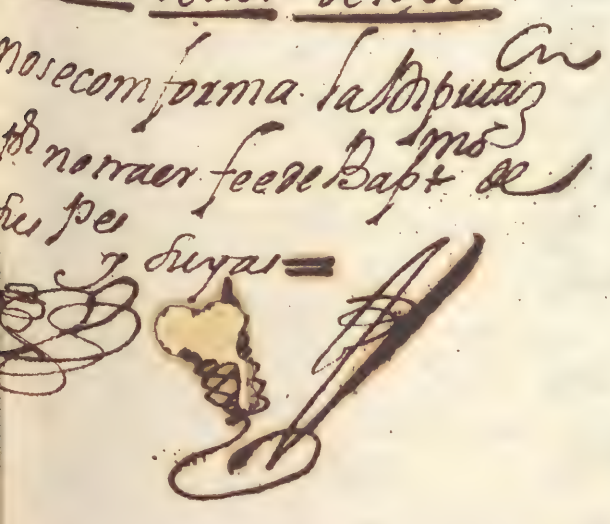 nosecomforma. la diputaon
por notraer feede Bapt mo de
sus Pes
y suyas =